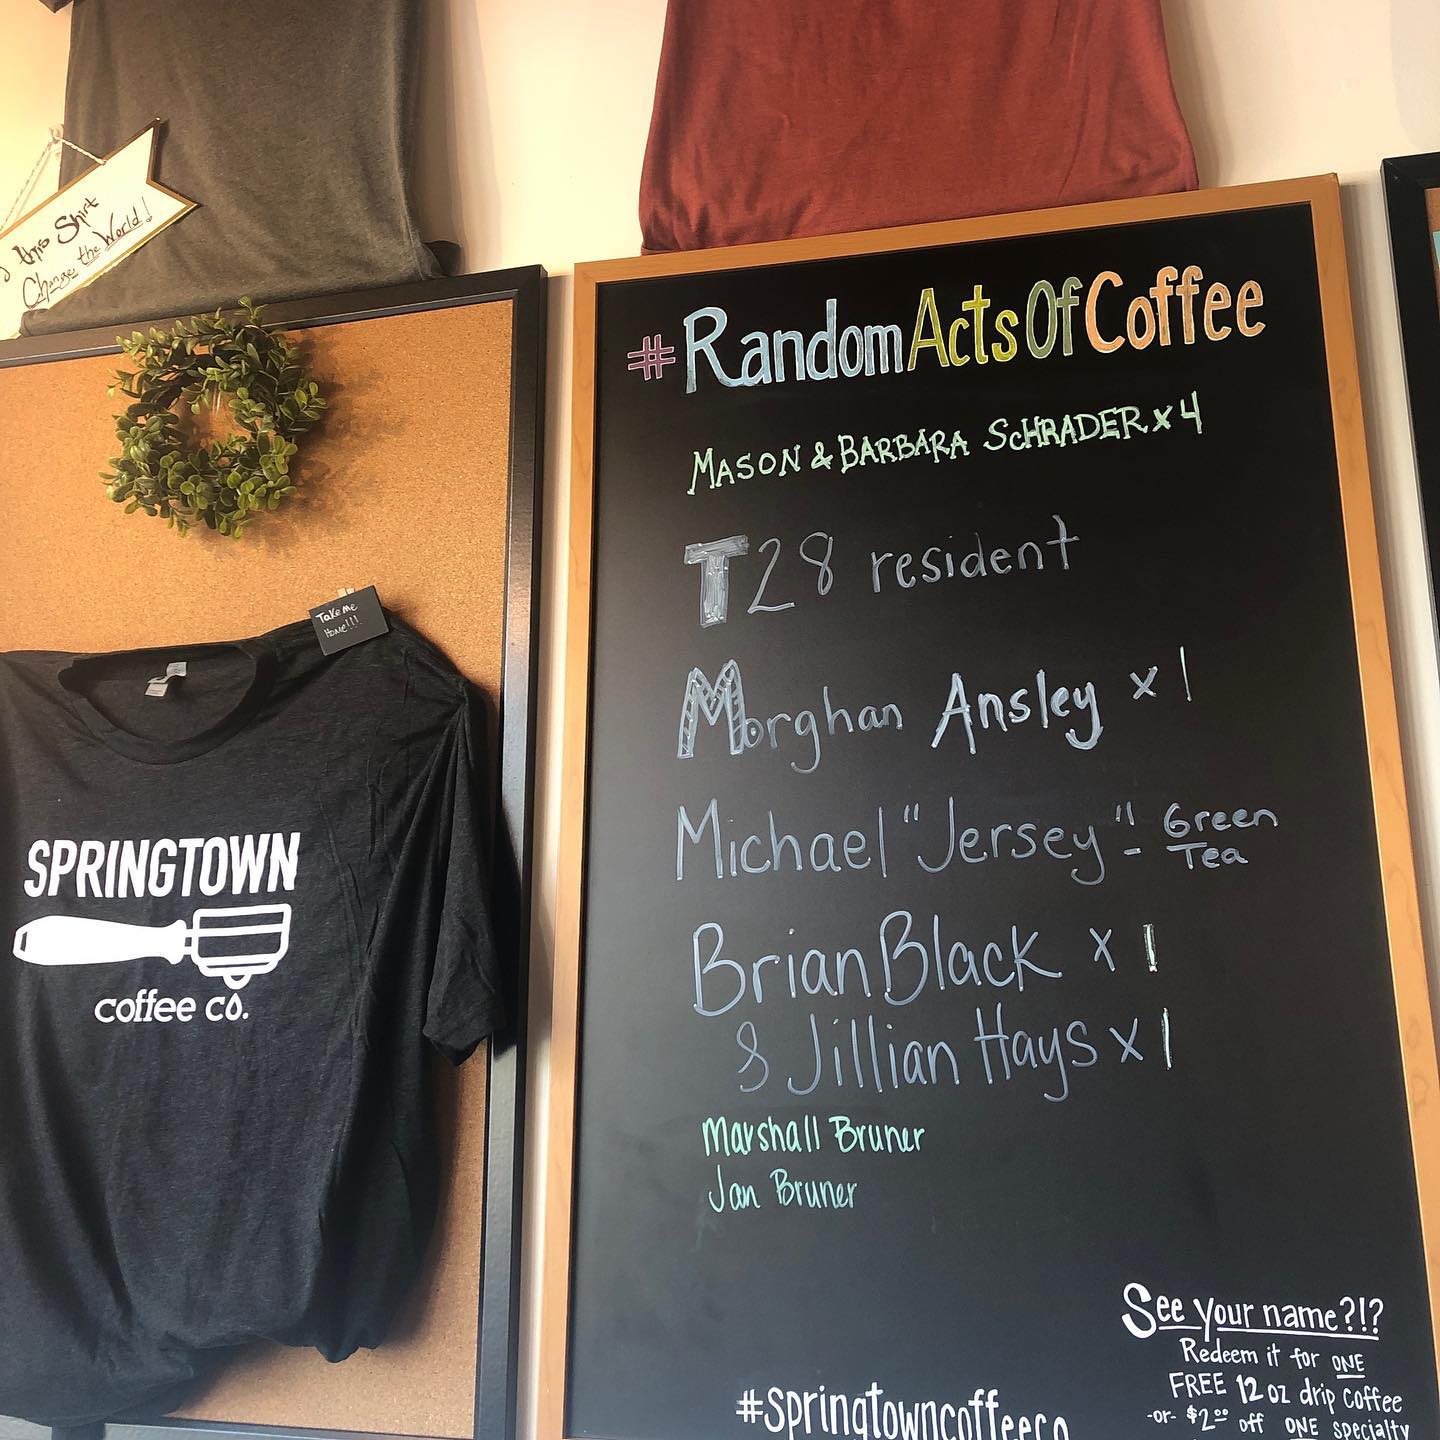 this Shirt
Change the World!
Take Me
Home!!!
SPRINGTOWN
coffee co.
#RandomActsOfCoffee
MASON & BARBARA SCHRADER x 4
T28 resident
Morghan Ansley x 1
Michael "Jersey" - Green
Tea
Brian Black x 1
& Jillian Hays x 1
Marshall Bruner
Jan Bruner
See your name?!?
Redeem it for ONE
FREE 12 oz drip coffee
-or- $2.00 off ONE specialty
#springtowncoffeeco